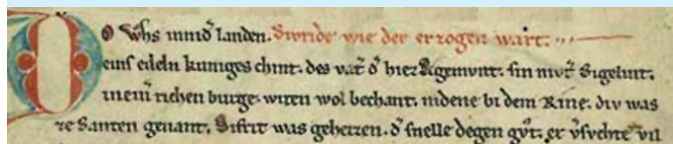 DO wͦhs innid᷑ landen. Siuride wie der erzogen wart.
eins edeln kuniges chint. des vat᷑ d᷑ hiez Sigemunt. sin mvͦt᷑ Sigelint.
inein᷑ richen burge. witen wol bechant. nidene bi dem Rine. div was
ze Santen genant. Sifrit was geheizen. d᷑ snelle degen gvͦt. er v᷑svchte vil